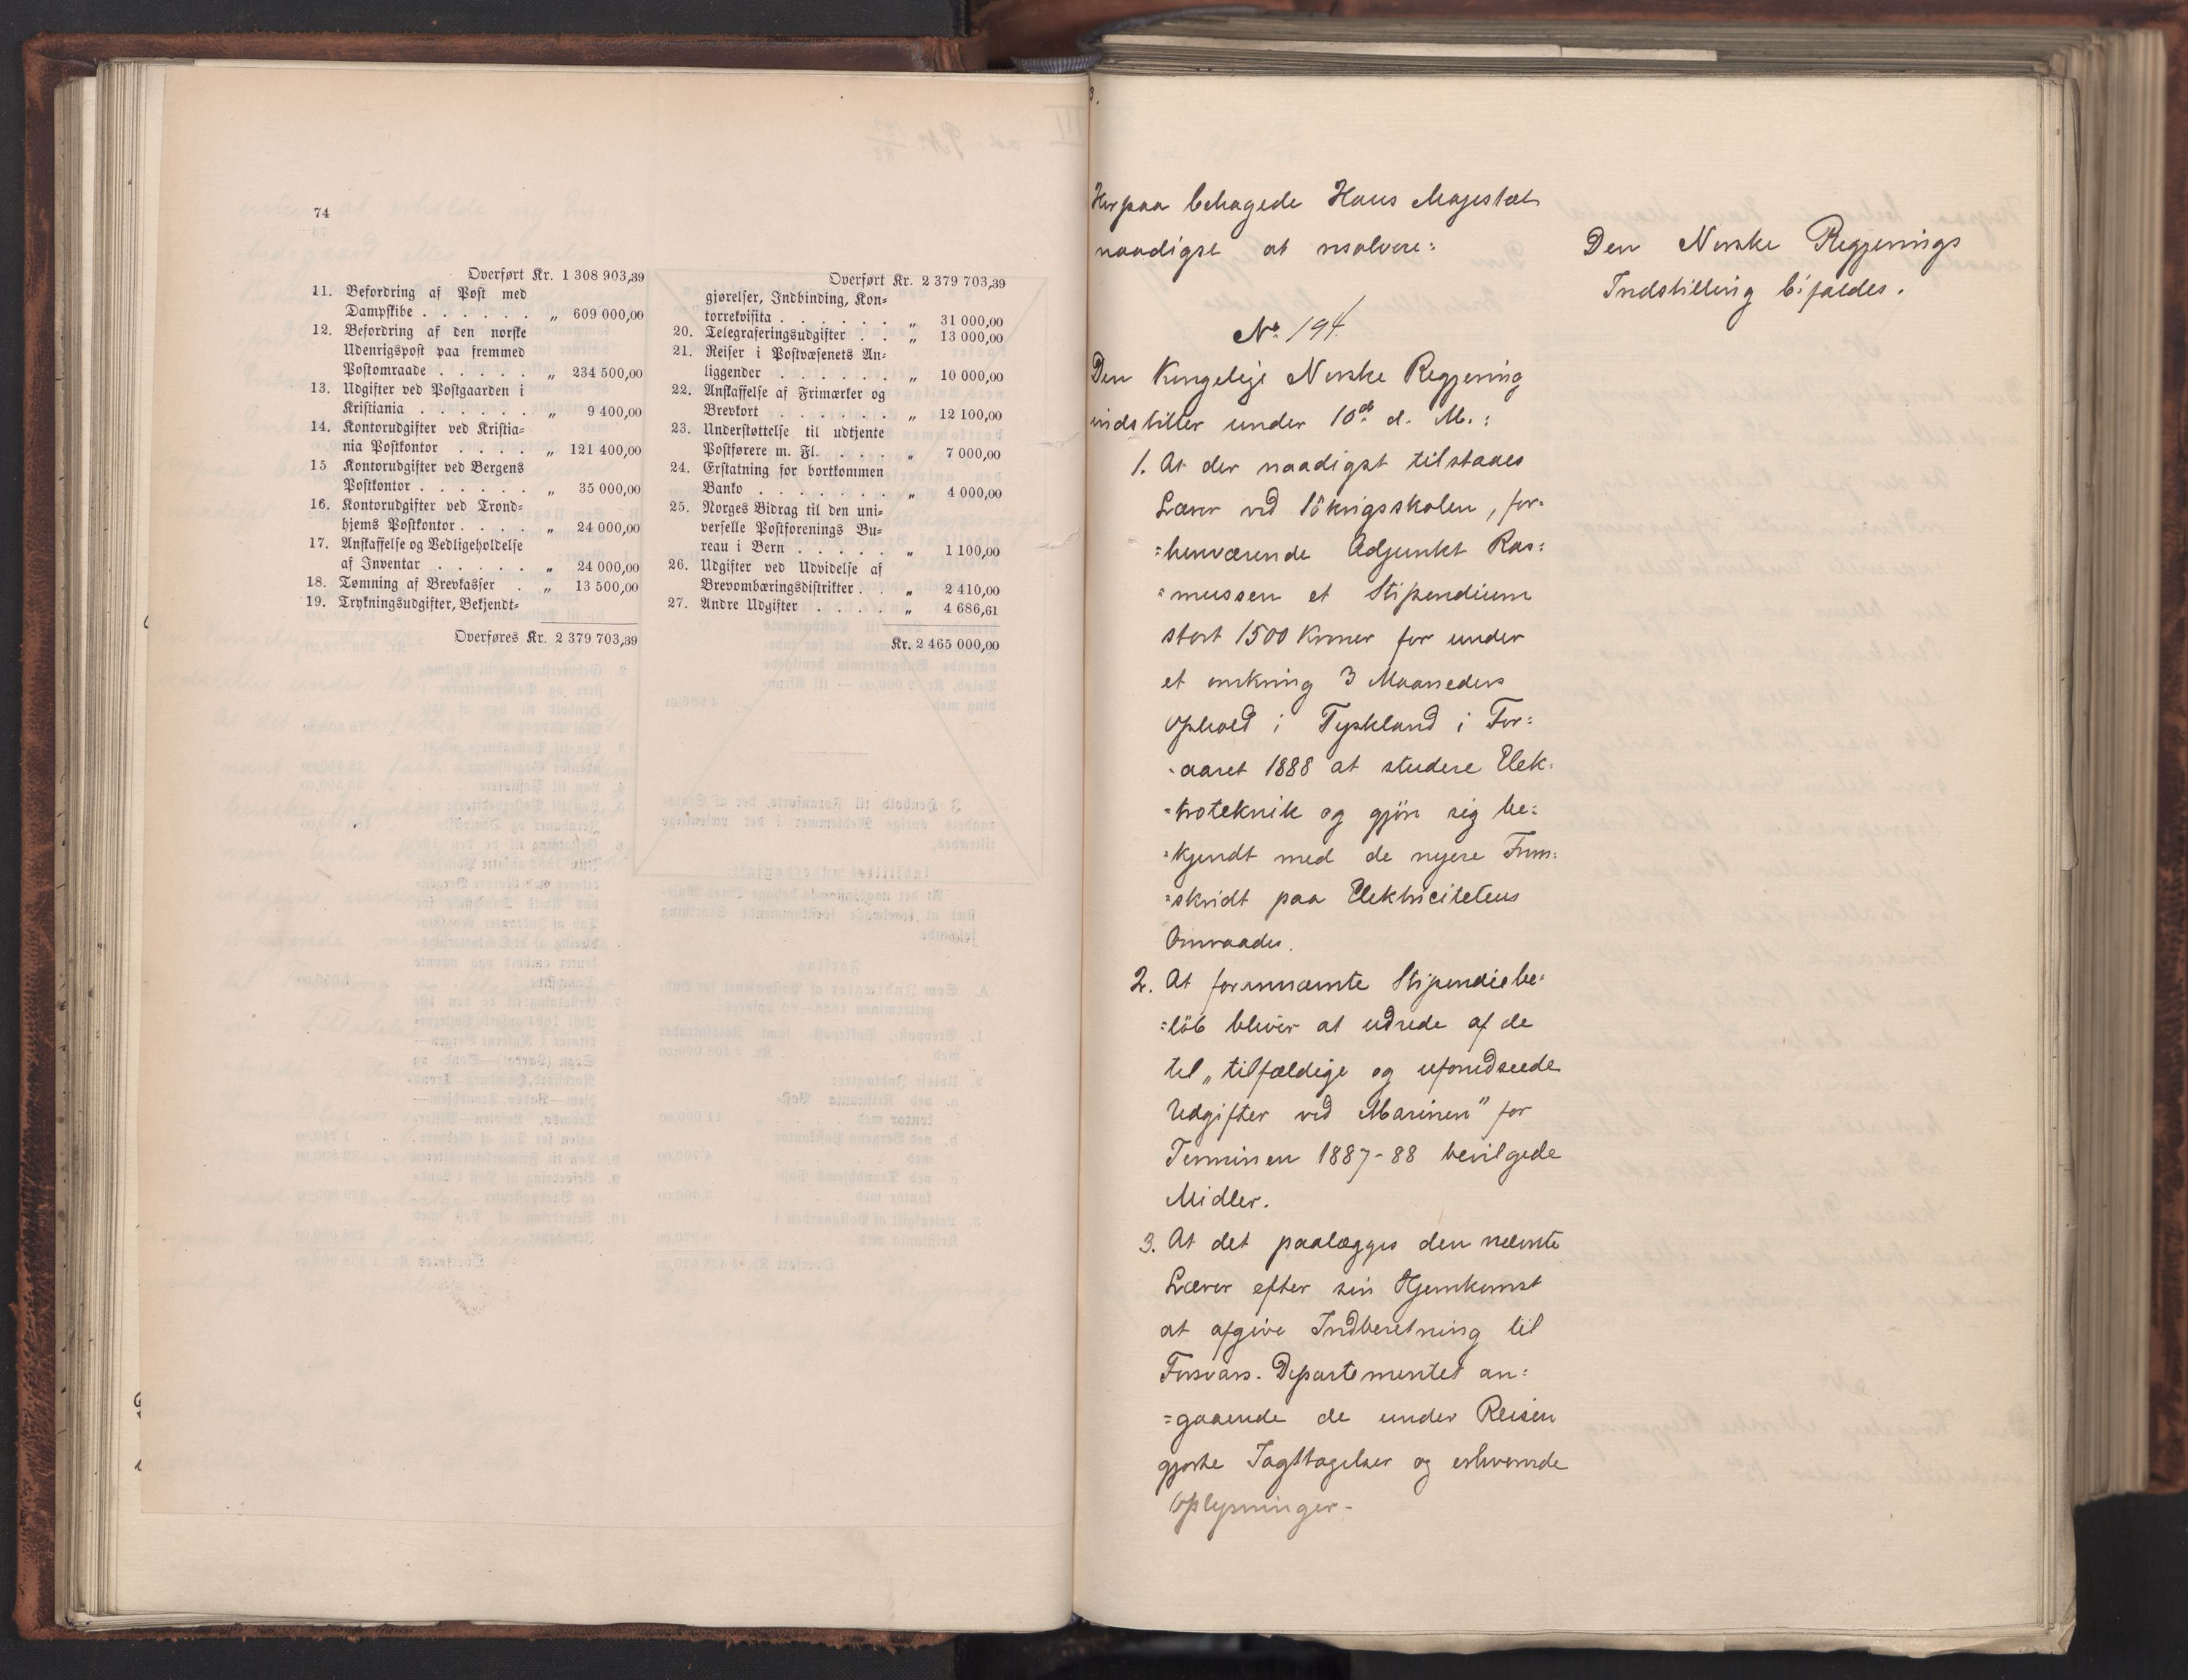 74
Overført Kr. 1 308 903,39
11. Befordring af Post med
Dampskibe . . . . . . „ 609 000,00
12. Befordring af den norske
Udenrigspost paa fremmed
Postomraade . . . . . „ 234 500,00
13. Udgifter ved Postgaarden i
Kristiania . . . . . . „ 9 400,00
14. Kontorudgifter ved Kristia=
nia Postkontor . . . . „ 121 400,00
15 Kontorudgifter ved Bergens
Postkontor . . . . . . „ 35 000,00
16. Kontorudgifter ved Trond=
hjems Postkontor . . . . „ 24 000,00
17. Anskaffelse og Vedligeholdelse
af Inventar . . . . . „ 24 000,00
18. Tømning af Brevkasser . „ 13 500,00
19. Trykningsudgifter, Bekjendt=
Overføres Kr. 2 379 703,39
Overført Kr. 2 379 703,39
gjørelser, Indbinding, Kon=
torrekvisita . . . . . . „ 31 000,00
20. Telegraferingsudgifter . . „ 13 000,00
21. Reiser i Postvæsenets An=
liggender . . . . . . „ 10 000,00
22. Anskaffelse af Frimærker og
Brevkort . . . . . . „ 12 100,00
23. Understøttelse til udtjente
Postførere m. Fl. . . . „ 7 000,00
24. Erstatning for bortkommen
Banko . . . . . . . „ 4 000,00
25. Norges Bidrag til den uni=
verselle Postforenings Bu=
reau i Bern . . . . . „ 1 100,00
26. Udgifter ved Udvidelse af
Brevombæringsdistrikter . . „ 2 410,00
27. Andre Udgifter . . . . „ 4 686,61
Kr. 2 465 000,00
Herpaa behagede Hans Majestæt
naadigst at resolvere:
Den Norske Regjerings
Indstilling bifaldes.
No. 194.
Den Kongelige Norske Regjering
indstiller under 10de d. M.:
1. At der naadigst tilstaaes
Lærer ved Søkrigsskolen, for=
=henværende Adjunkt Ras=
=mussen et Stipendium
stort 1500 Kroner for under
et omkring 3 Maaneders
Ophold i Tyskland i For=
=aaret 1888 at studere Elek=
=troteknik og gjøre sig be=
=kjendt med de nyere Frem=
=skridt paa Elektricitetens
Omraade.
2. At forannævnte Stipendiebe=
=løb bliver at udrede af de
til „tilfældige og uforudseede
Udgifter ved Marinen" for
Terminen 1887-88 bevilgede
Midler.
3. At det paalægges den nævnte
Lærer efter sin Hjemkomst
at afgive Indberetning til
Forsvars-Departementet an=
=gaaende de under Reisen
gjorte Iagttagelser og erhvervede
Oplysninger-